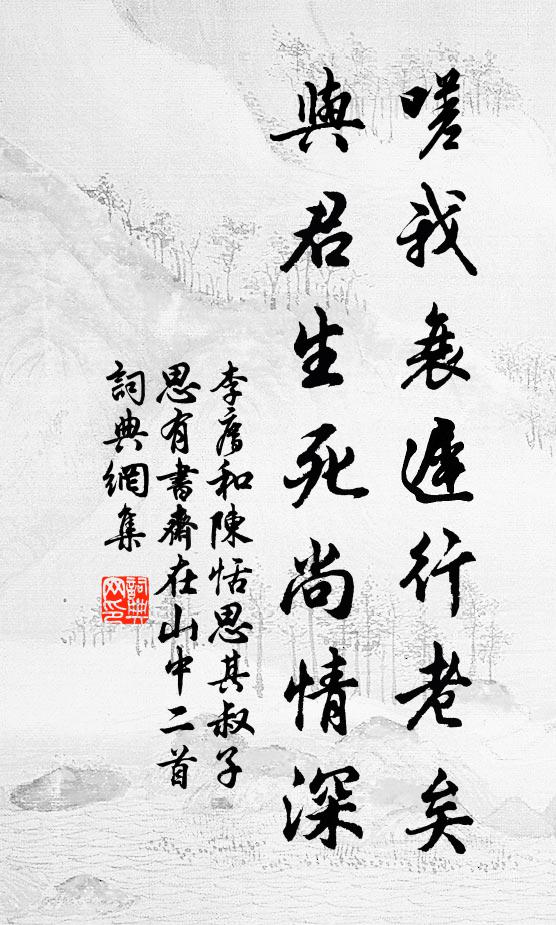 嗟我衰遲行老矣
與君生死尚情深
李廌和陳恬思其叔子
思有書齋在山中二首
詞典網集